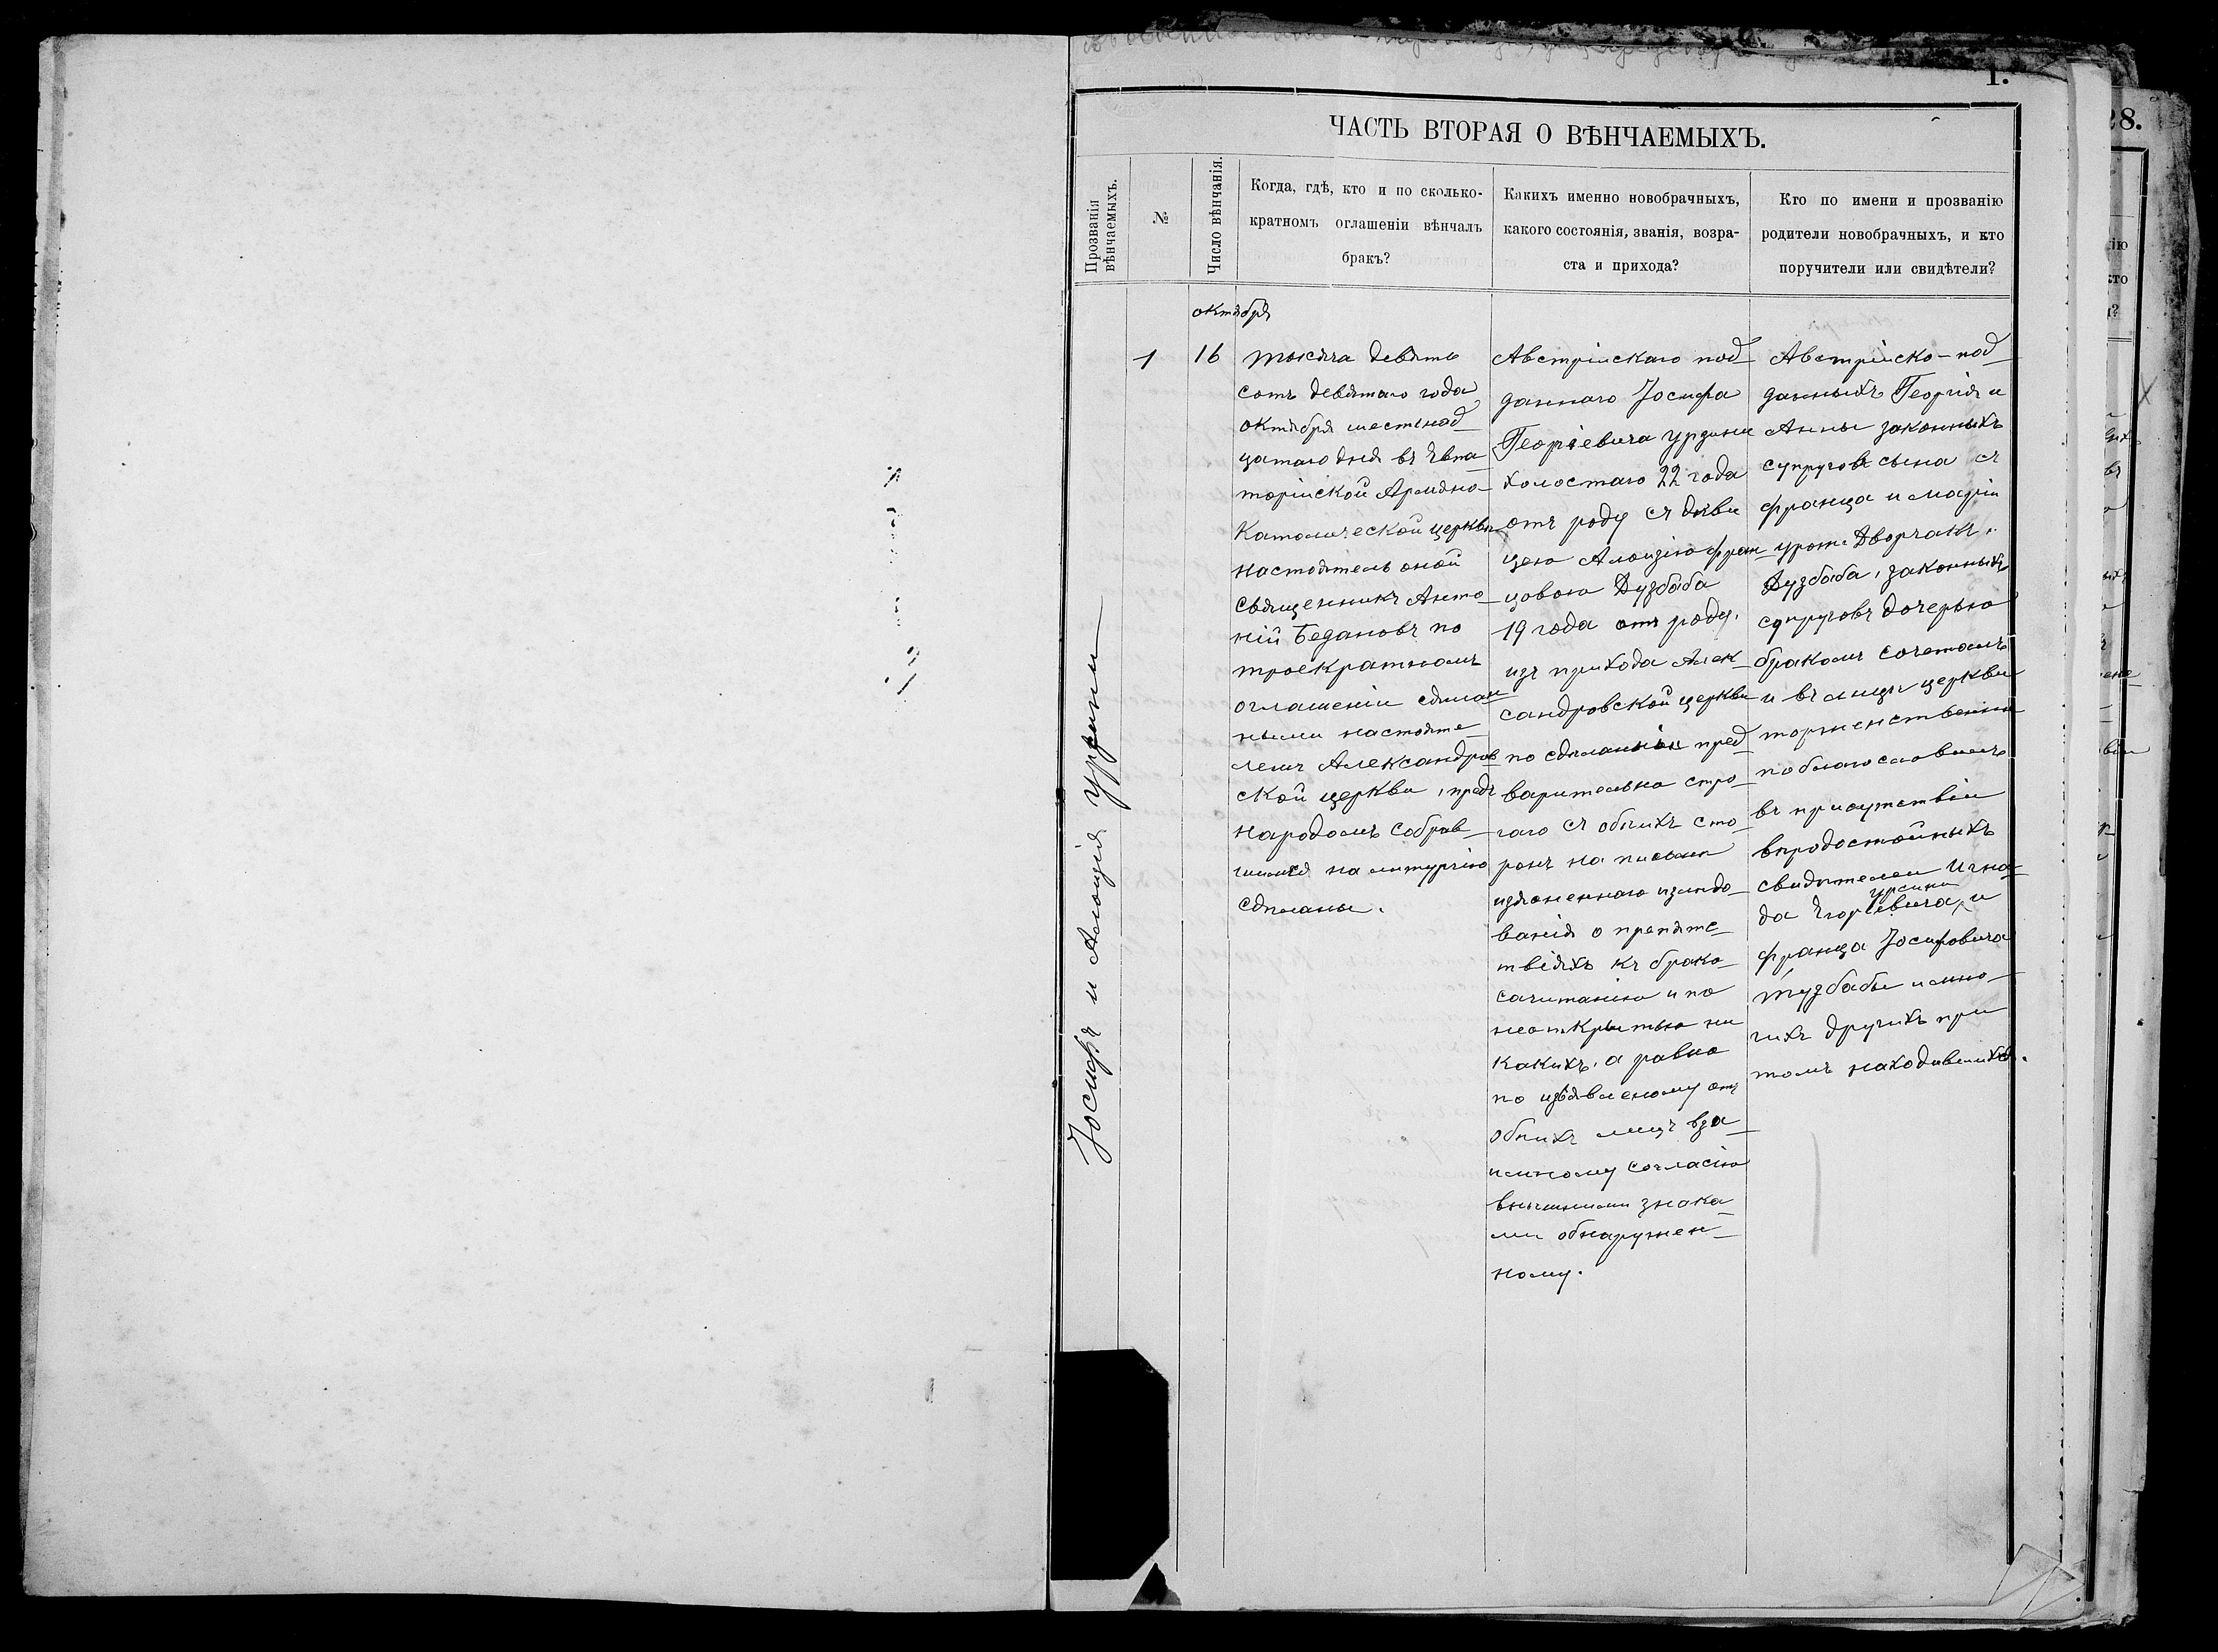 1.
ЧАСТЬ ВТОРАЯ О ВѢНЧАЕМЫХЪ.
Прозванія
вѣнчаемыхъ.
№
Число вѣнчанія.
Когда, гдѣ, кто и по сколько-
кратномъ оглашеніи вѣнчалъ
бракъ?
Какихъ именно новобрачныхъ,
какого состоянія, званія, возра-
ста и прихода?
Кто по имени и прозванію
родители новобрачныхъ, и кто
поручители или свидѣтели?
Іосифъ и Алоизія Урсини
октября
1
16
тысяча девять
сотъ девятаго года
октября шестнад
цатаго дня въ Евпа
торійской Армяно-
Католической церкви
настоятель оной
священникъ Анто
ній Бедановъ по
троекратномъ
оглашеніи сдѣлан
ными настояте
лемъ Александров
ской церкви, предъ
народомъ собрав
шимся на литургію
сдѣланы.
Австрійскаго под
даннаго Іосифа
Георгіевича Урзини
холостаго 22 года
отъ роду съ дѣви
цею Алоизіею Фран
цовою Дузбаба
19 года отъ роду,
изъ прихода Алек
сандровской церкви
по сдѣланіи пред
варительно стро
гаго съ обѣихъ сто
ронъ на письмѣ
изложеннаго изслѣдо
ванія о препятс
твіяхъ къ брако
сочитанію и по
неоткрытью ни
какихъ, а равно
по изъявленому отъ
обѣихъ лицъ вза
имному согласію
внѣшними знака
ми обнаружен
ному.
Австрійско-под
данныхъ Георгія и
Анны законныхъ
супруговъ сына съ
Франца и Маріи
урож. Дворчакъ
Дузбаба, законныхъ
супруговъ дочерью
бракомъ сочеталъ
и въ лицѣ церкви
торжественно
поблагословилъ
въ присутствіи
вѣродостойныхъ
свидѣтелей Игна
Урсини
да Егоревича, и
Франца Іосифовича
Тузбабы и мно
гихъ другихъ при
томъ находившихся.
28.